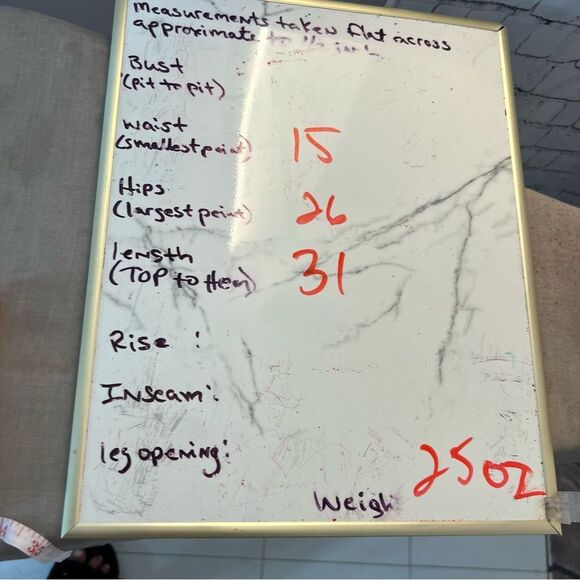 Measurements taken flat across
approximate to
Bust
(pit to pit)
waist
(smallest point) 15
Hips
(largest point) 26
length
(TOP to Hem) 31
Rise :
Inseam:
leg opening:
25 oz
Weigh
35